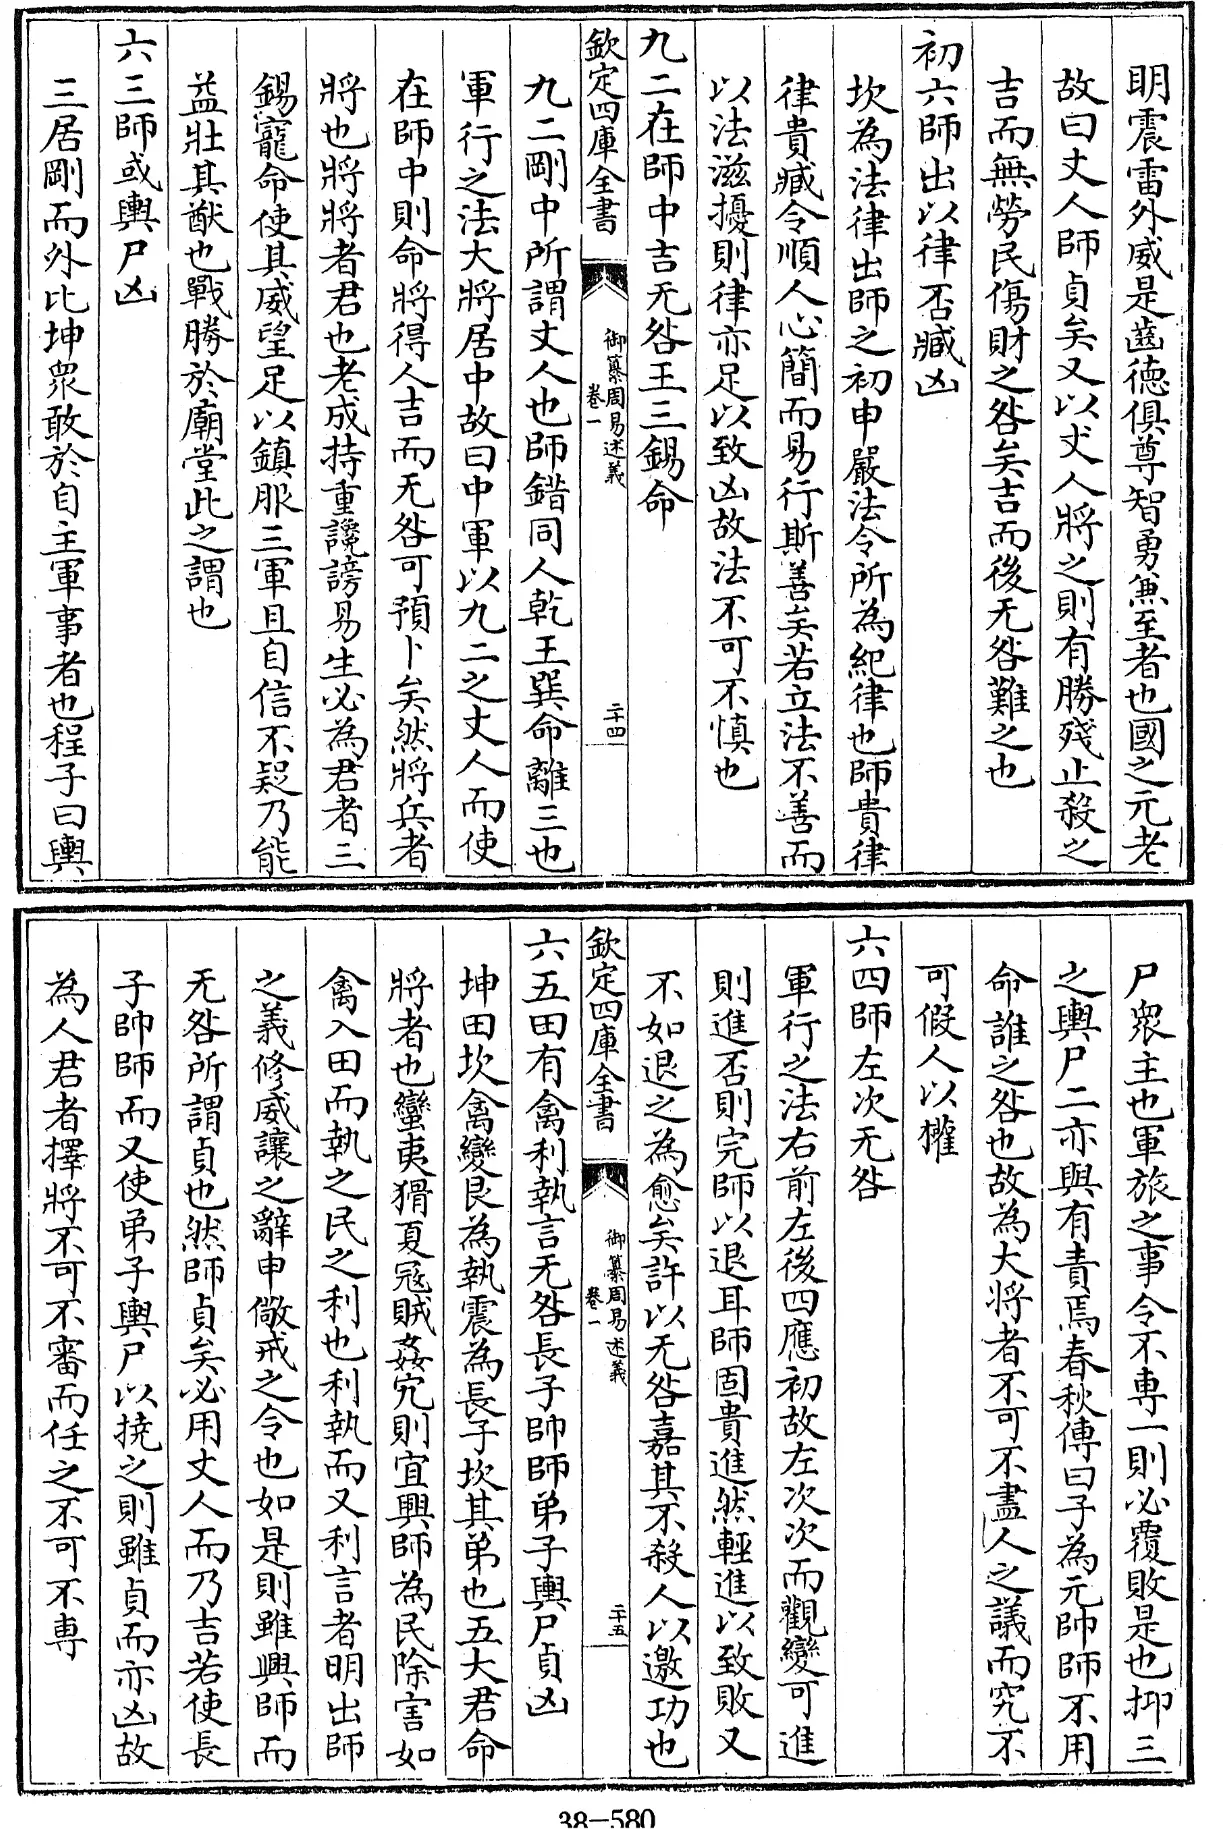 明震雷外威是齒德俱尊智勇兼至者也國之元老
故曰丈人師貞矣又以丈人將之則有勝殘止殺之
吉而無勞民傷財之咎矣吉而後无咎難之也
初六師出以律否臧凶
坎為法律出師之初申嚴法令所為紀律也師貴律
律貴臧令順人心簡而易行斯善矣若立法不善而
以法滋擾則律亦足以致凶故法不可不慎也
九二在師中吉无咎王三錫命
欽定四庫全書
御纂周易述義
卷一
二十四
九二剛中所謂丈人也師錯同人乾王巽命離三也
軍行之法大將居中故曰中軍以九二之丈人而使
在師中則命將得人吉而无咎可預卜矣然將兵者
將也將將者君也老成持重讒謗易生必為君者三
錫寵命使其威望足以鎮服三軍且自信不疑乃能
益壯其猷也戰勝於廟堂此之謂也
六三師或輿尸凶
三居剛而外比坤衆敢於自主軍事者也程子曰輿
尸衆主也軍旅之事令不専一則必覆敗是也抑三
之輿尸二亦與有責焉春秋傳曰子為元帥師不用
命誰之咎也故為大將者不可不盡人之議而究不
可假人以權
六四師左次无咎
軍行之法右前左後四應初故左次次而觀變可進
則進否則完師以退耳師固貴進然輕進以致敗又
不如退之為愈矣許以无咎嘉其不殺人以邀功也
欽定四庫全書
御纂周易述義
卷一
二十五
六五田有禽利執言无咎長子帥師弟子輿尸貞凶
坤田坎禽變艮為執震為長子坎其弟也五大君命
將者也蠻夷猾夏冦賊姦宄則宜興師為民除害如
禽入田而執之民之利也利執而又利言者明出師
之義修威讓之辭申儆戒之令也如是則雖興師而
无咎所謂貞也然師貞矣必用丈人而乃吉若使長
子帥師而又使弟子輿尸以撓之則雖貞而亦凶故
為人君者擇將不可不審而任之不可不専
38-580